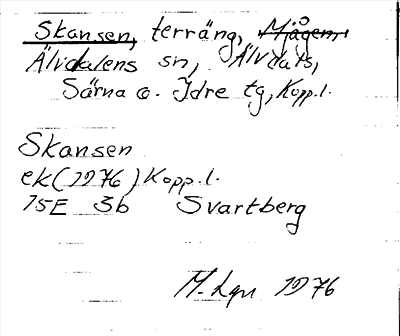 Skansen, terräng,
Älvdalens sn, Älvdals,
Särna o. Idre tg, Kopp.l.
Skansen
ek(1976) Kopp.l.
15E 3b Svartberg
1976